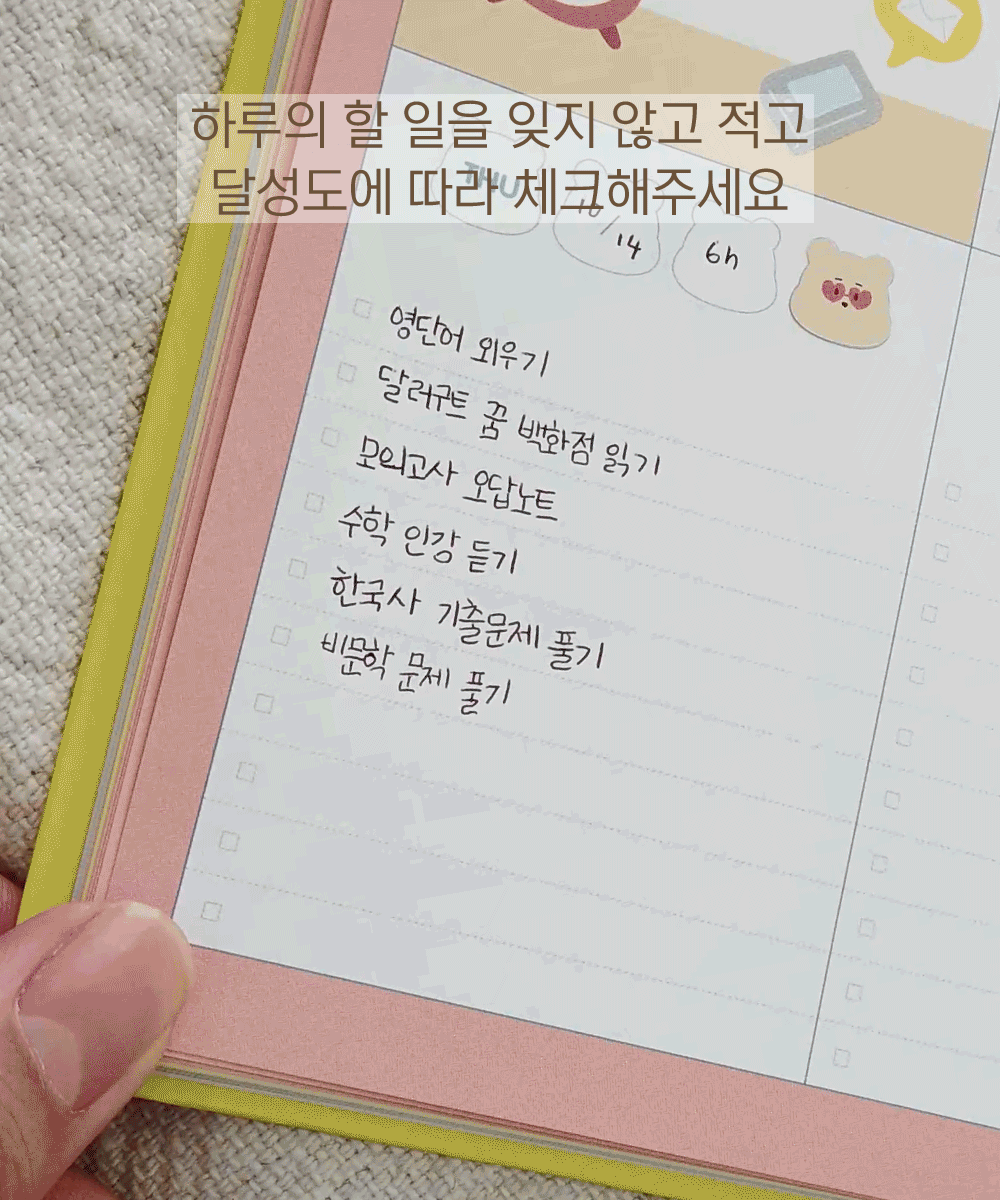 하루의 할 일을 잊지 않고 적고
달성도에 따라 체크해주세요
THU 10/14 6h
영단어 외우기
달러구트 꿈 백화점 읽기
모의고사 오답노트
수학 인강 듣기
한국사 기출문제 풀기
비문학 문제 풀기